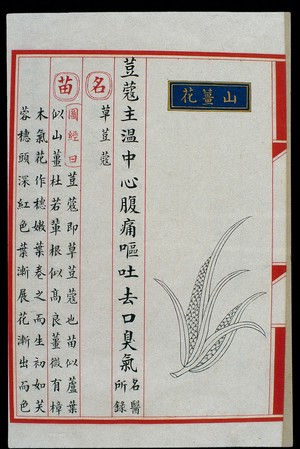 花薑山
荳蔻主温中心腹痛嘔吐去口臭氣名醫所錄
名
草荳蔻
苗
圖經曰荳蔻即草荳蔻也苗似蘆葉
似山薑杜若軰根似高良薑微有樟
木氣花作穗嫩葉卷之而生初如芙
蓉穗頭深紅色葉漸展花漸出而色